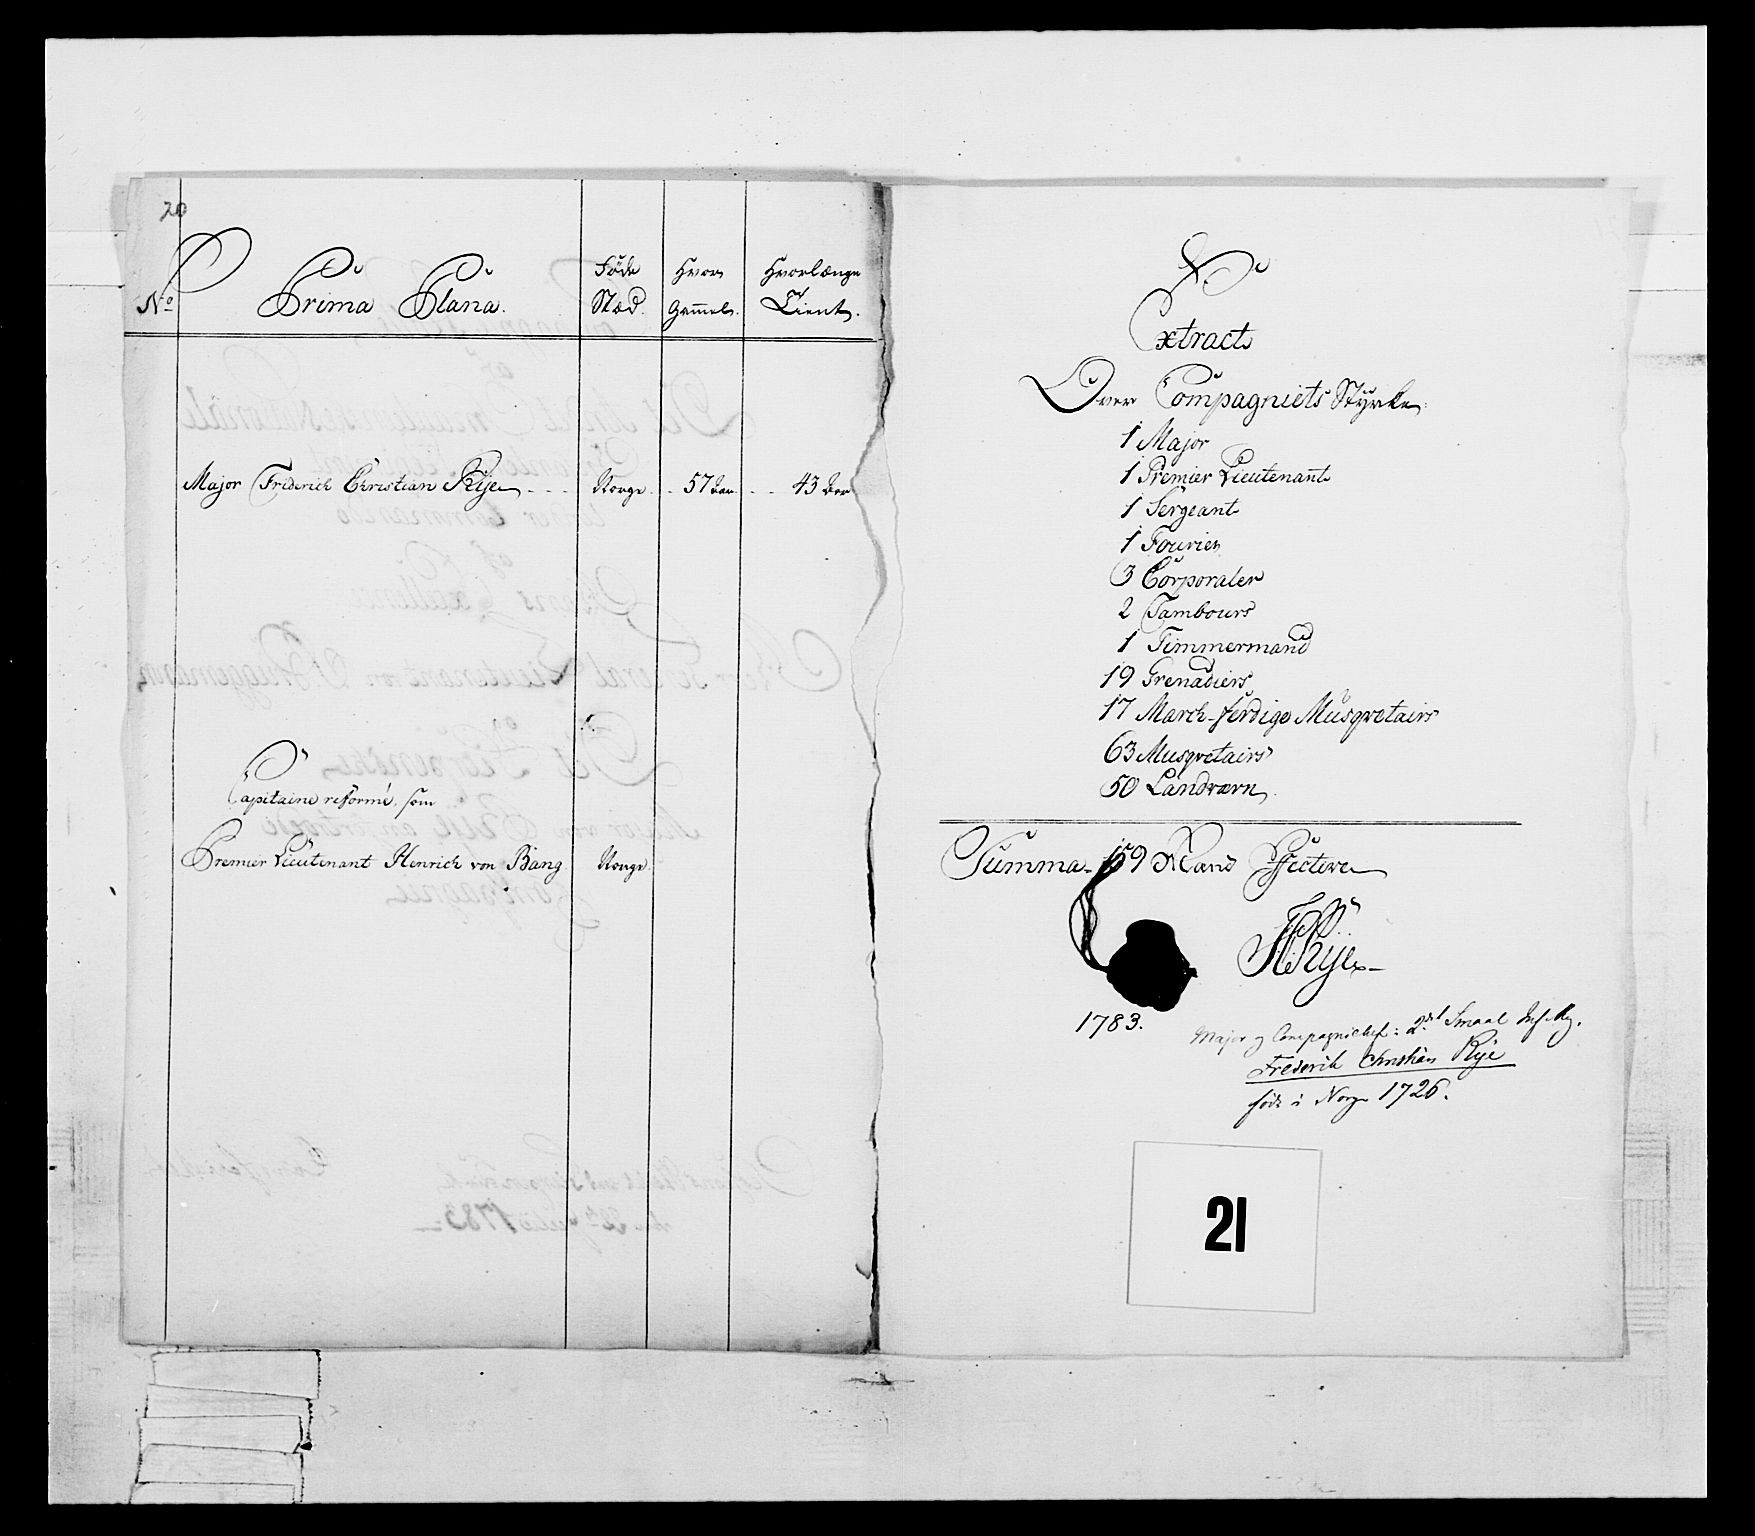 20
No Prima Plana. Føde Stæd. Hvor Gammel. Hvorlænge Tient.
Major Friderich Christian Rije Norge 57 Aar 43 Aar
Capitaine reformé, som
Premier Lieutenant Henrich von Bang Norge
Extract
Over Compagniets Styrke
1 Major
1 Premier Lieutenant
1 Sergeant
1 Fourier
3 Corporaler
2 Tambours
1 Timmermand
19 Grenadiers
17 March-færdige Musqvetairs
63 Musqvetairs
50 Landværn
Summa 159 Mand Effective
FCRije
1783.
Major og Compagnichef: 2det Smaal Inf. Rg.
Frederik Christian Rye
født i Norge 1726.
21